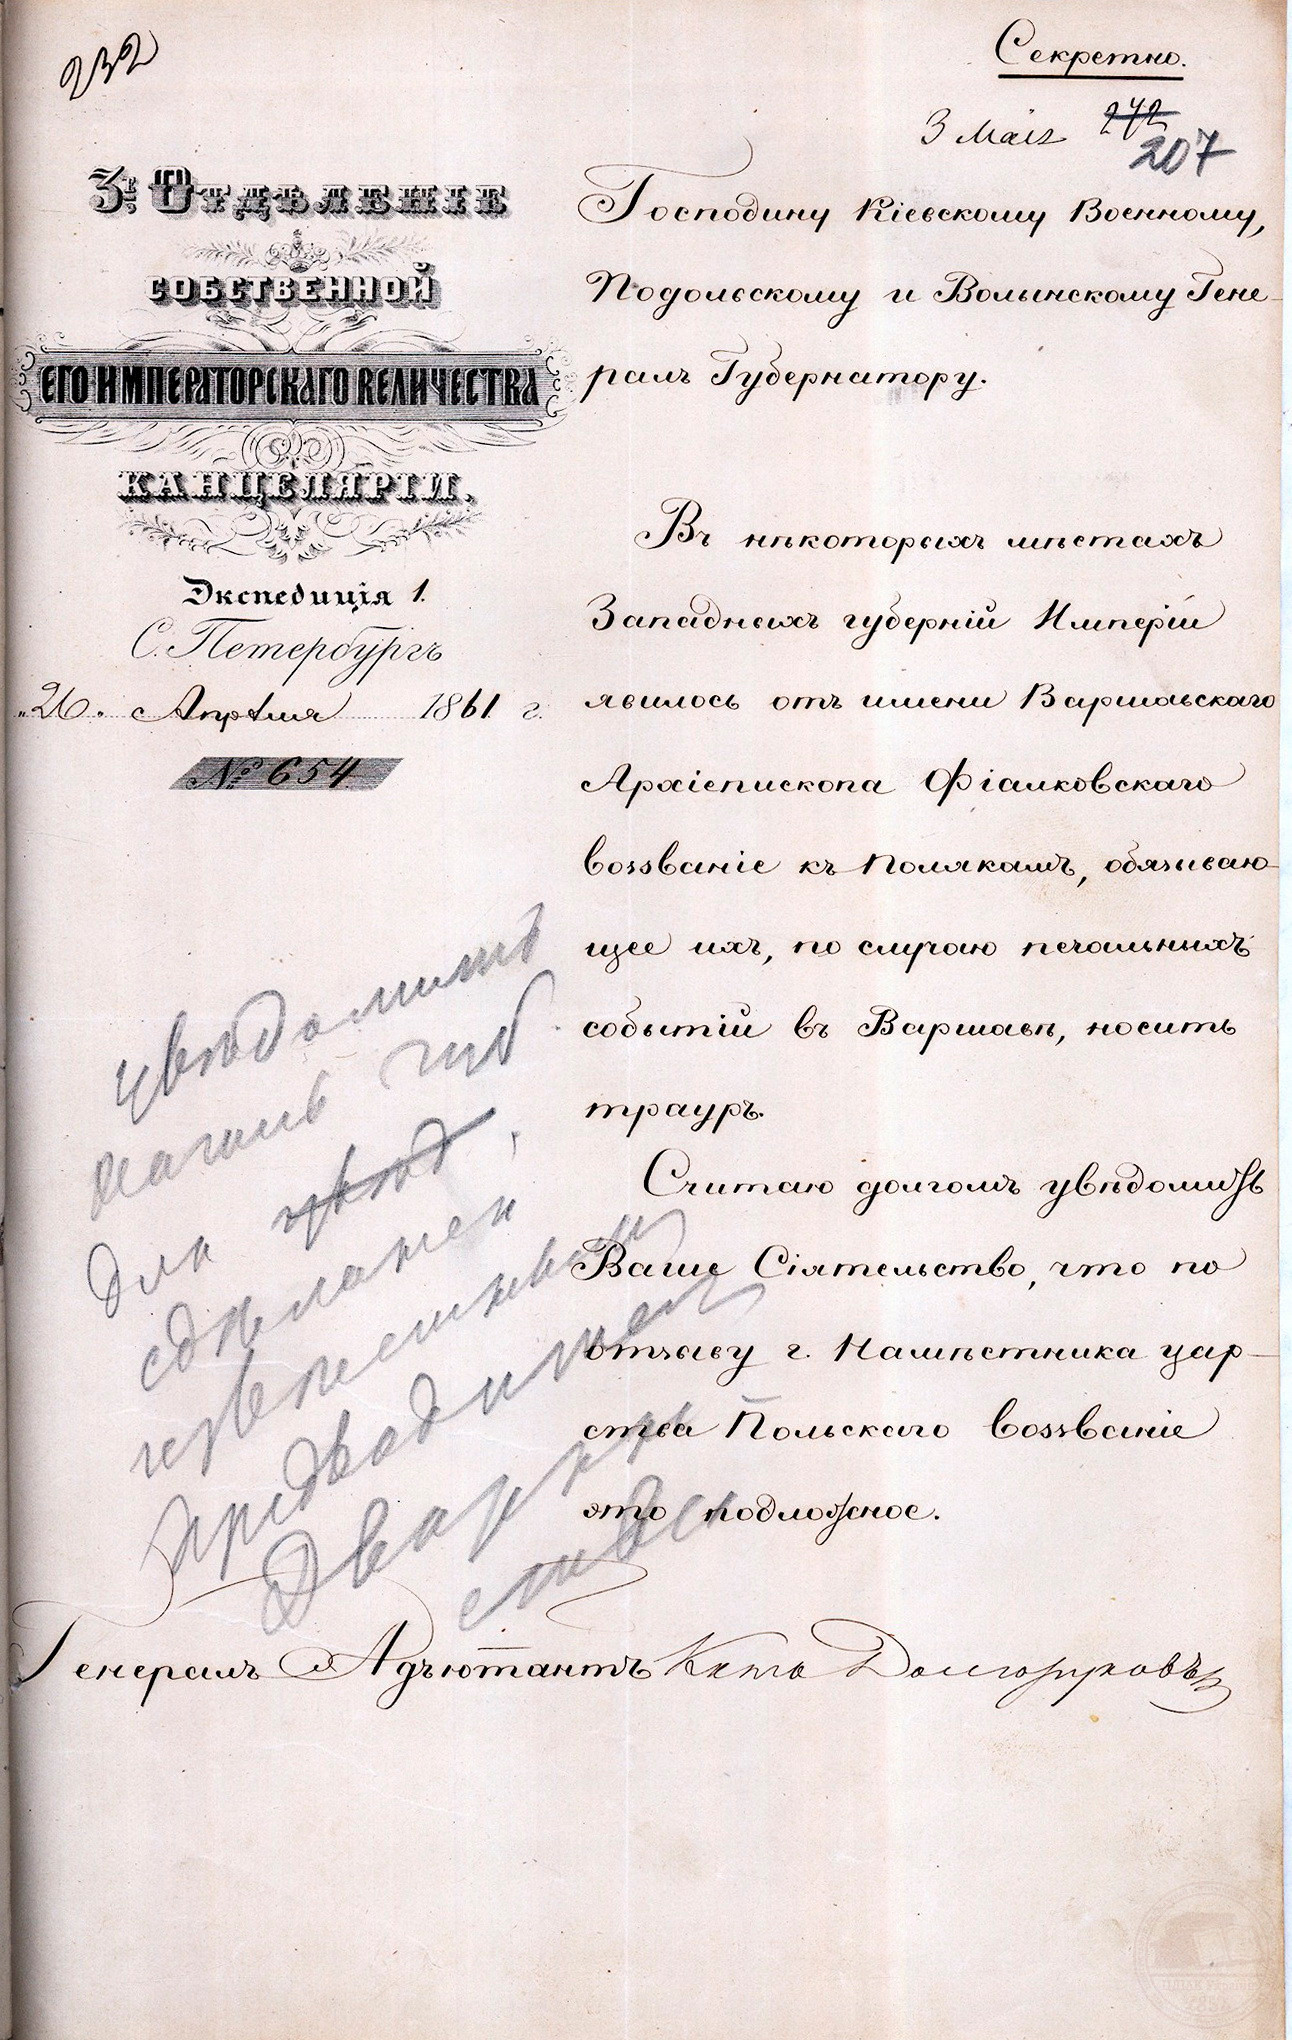 232
Секретно.
3 Мая
272
207
3е. Отдѣленіе
СОБСТВЕННОЙ
ЕГО ИМПЕРАТОРСКАГО ВЕЛИЧЕСТВА
КАНЦЕЛЯРІИ.
Экспедиція 1.
С. Петербургъ
„26„ Апрѣля 1861 г.
№ 654.
Господину Кіевскому Военному,
Подольскому и Волынскому Гене-
ралъ Губернатору.
Въ нѣкоторыхъ мѣстахъ
Западныхъ губерній Имперіи
явилось отъ имени Варшавскаго
Архіепископа Фіалковскаго
воззваніе къ Полякамъ, обязываю-
щее ихъ, по случаю печальныхъ
событій въ Варшавѣ, носить
трауръ.
Считаю долгомъ увѣдомить
Ваше Сіятельство, что по
отзыву г. Намѣстника цар-
ства Польскаго воззваніе
это подложное.
увѣдомить
началь губ
для
сдѣланія
извѣстнымъ
предводител
Дворян
ства
Генералъ Адъютантъ Князь Долгоруковъ